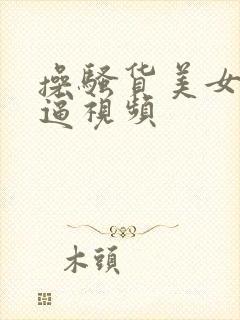 操骚货美女
逼視頻
木頭